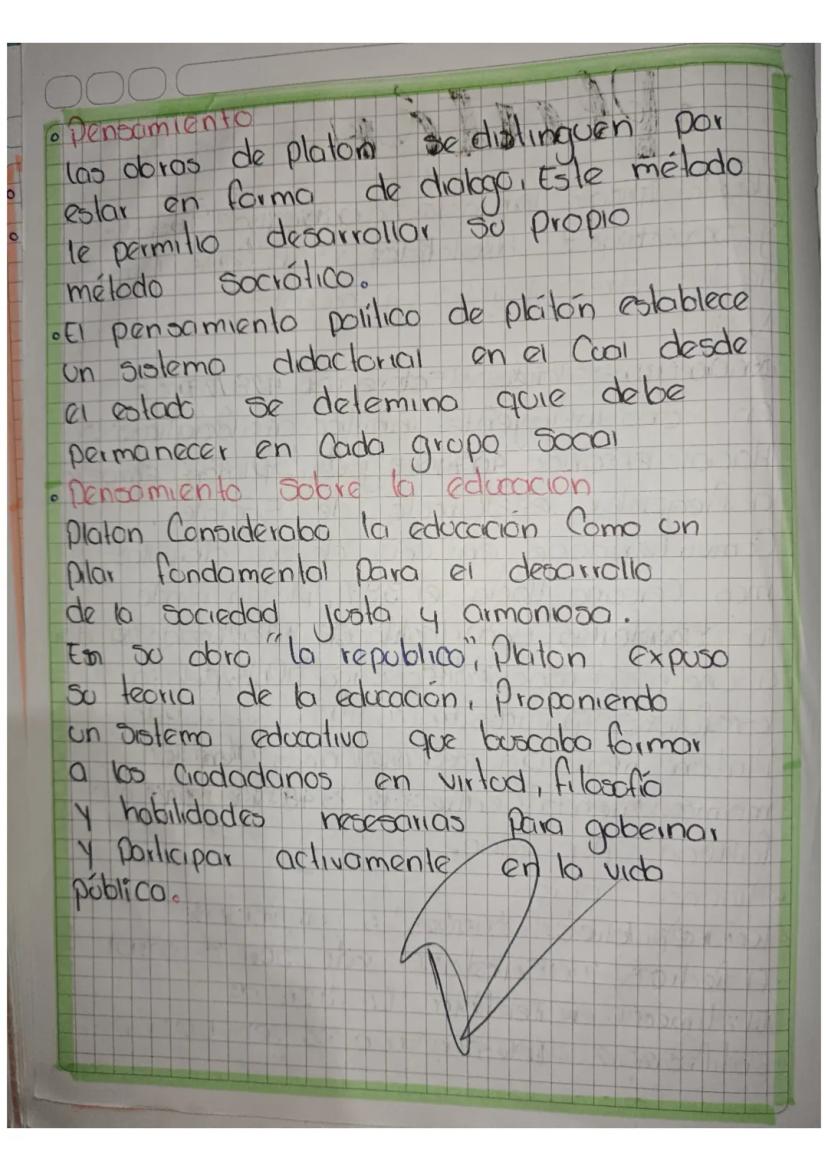 • Pensamiento
las obras de platon se distinguen por
estar en forma de dialogo, Este método
le permitio desarrollar su propio
método socrótico.
• El pensamiento político de platón establece
un sistema didactorial en el Cual desde
el estado se detemina quie debe
permanecer en Cada grupo socal
• Pensamiento sobre la educacion
Platon Considerabo la educación Como un
pilar fundamental para el desarrollo
de la sociedad justa y armoniosa.
En su obra "la republica", Platon expuso
su teoria de la educación, Proponiendo
un sistema educativo que buscaba formar
a los Ciudadanos en virtud, filosofía
y habilidades nesesarias para gobernar
y participar activamente en la vida
pública.